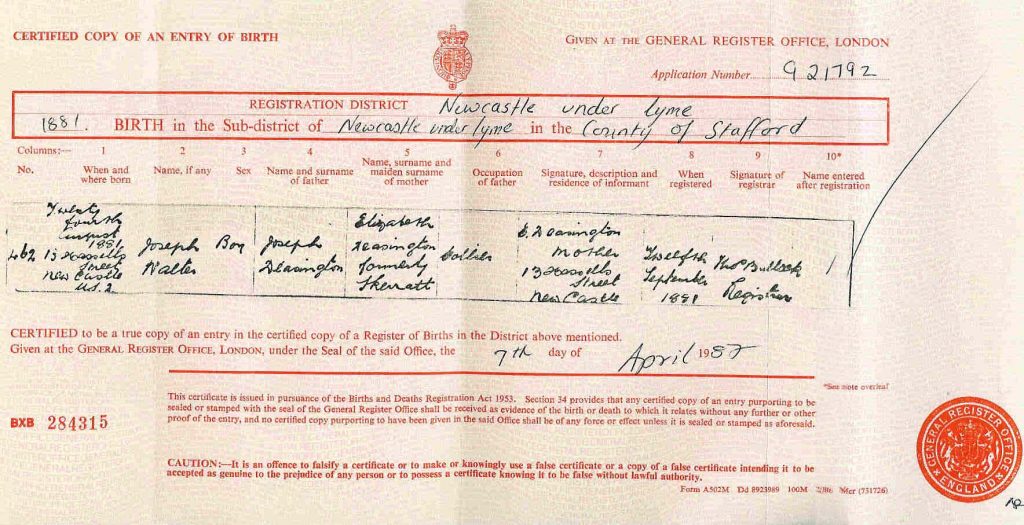 CERTIFIED COPY OF AN ENTRY OF BIRTH
GIVEN AT THE GENERAL REGISTER OFFICE, LONDON
Application Number G 21792
REGISTRATION DISTRICT Newcastle under Lyme
1881. BIRTH in the Sub-district of Newcastle under Lyme in the County of Stafford
Columns:— 1 2 3 4 5 6 7 8 9 10*
No. When and where born Name, if any Sex Name and surname of father Name, surname and maiden surname of mother Occupation of father Signature, description and residence of informant When registered Signature of registrar Name entered after registration
462
Twenty
fourth
August
1881
13 Hassells
Street
New Castle
U.S.D
Joseph
Walter
Boy
Joseph
Deasington
Elizabeth
Deasington
formerly
Skerratt
Collier
E. Deasington
Mother
13 Hassells
Street
New Castle
Twelfth
September
1881
Thos Bullock
Registrar
CERTIFIED to be a true copy of an entry in the certified copy of a Register of Births in the District above mentioned.
Given at the GENERAL REGISTER OFFICE, LONDON, under the Seal of the said Office, the 7th day of April 1987
*See note overleaf
This certificate is issued in pursuance of the Births and Deaths Registration Act 1953. Section 34 provides that any certified copy of an entry purporting to be
sealed or stamped with the seal of the General Register Office shall be received as evidence of the birth or death to which it relates without any further or other
proof of the entry, and no certified copy purporting to have been given in the said Office shall be of any force or effect unless it is sealed or stamped as aforesaid.
BXB 284315
CAUTION:—It is an offence to falsify a certificate or to make or knowingly use a false certificate or a copy of a false certificate intending it to be
accepted as genuine to the prejudice of any person or to possess a certificate knowing it to be false without lawful authority.
Form A502M Dd 8923989 100M 2/86 Mcr (731726)
GENERAL REGISTER OFFICE
ENGLAND